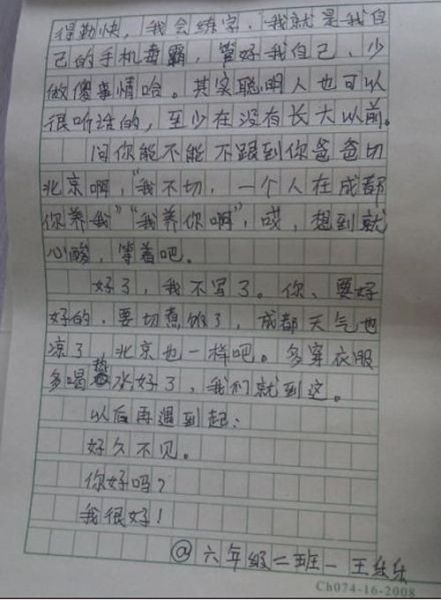 得勤快，我会练字，我就是我自
己的手机毒霸，管好我自己、少
做傻事情哈。其实聪明人也可以
很听话的，至少在没有长大以前。
问你能不能不跟到你爸爸切
北京啊，"我不切，一个人在成都
你养我""我养你啊"，哎，想到就
心酸，等着吧。
好了，我不写了。你、要好
好的，要切惹饭了，成都天气也
凉了，北京也一样吧。多穿衣服
多喝热水好了，我们就到这。
以后再遇到起：
好久不见。
你好吗？
我很好！
@六年级二班一王乐乐
Ch074-16-2008